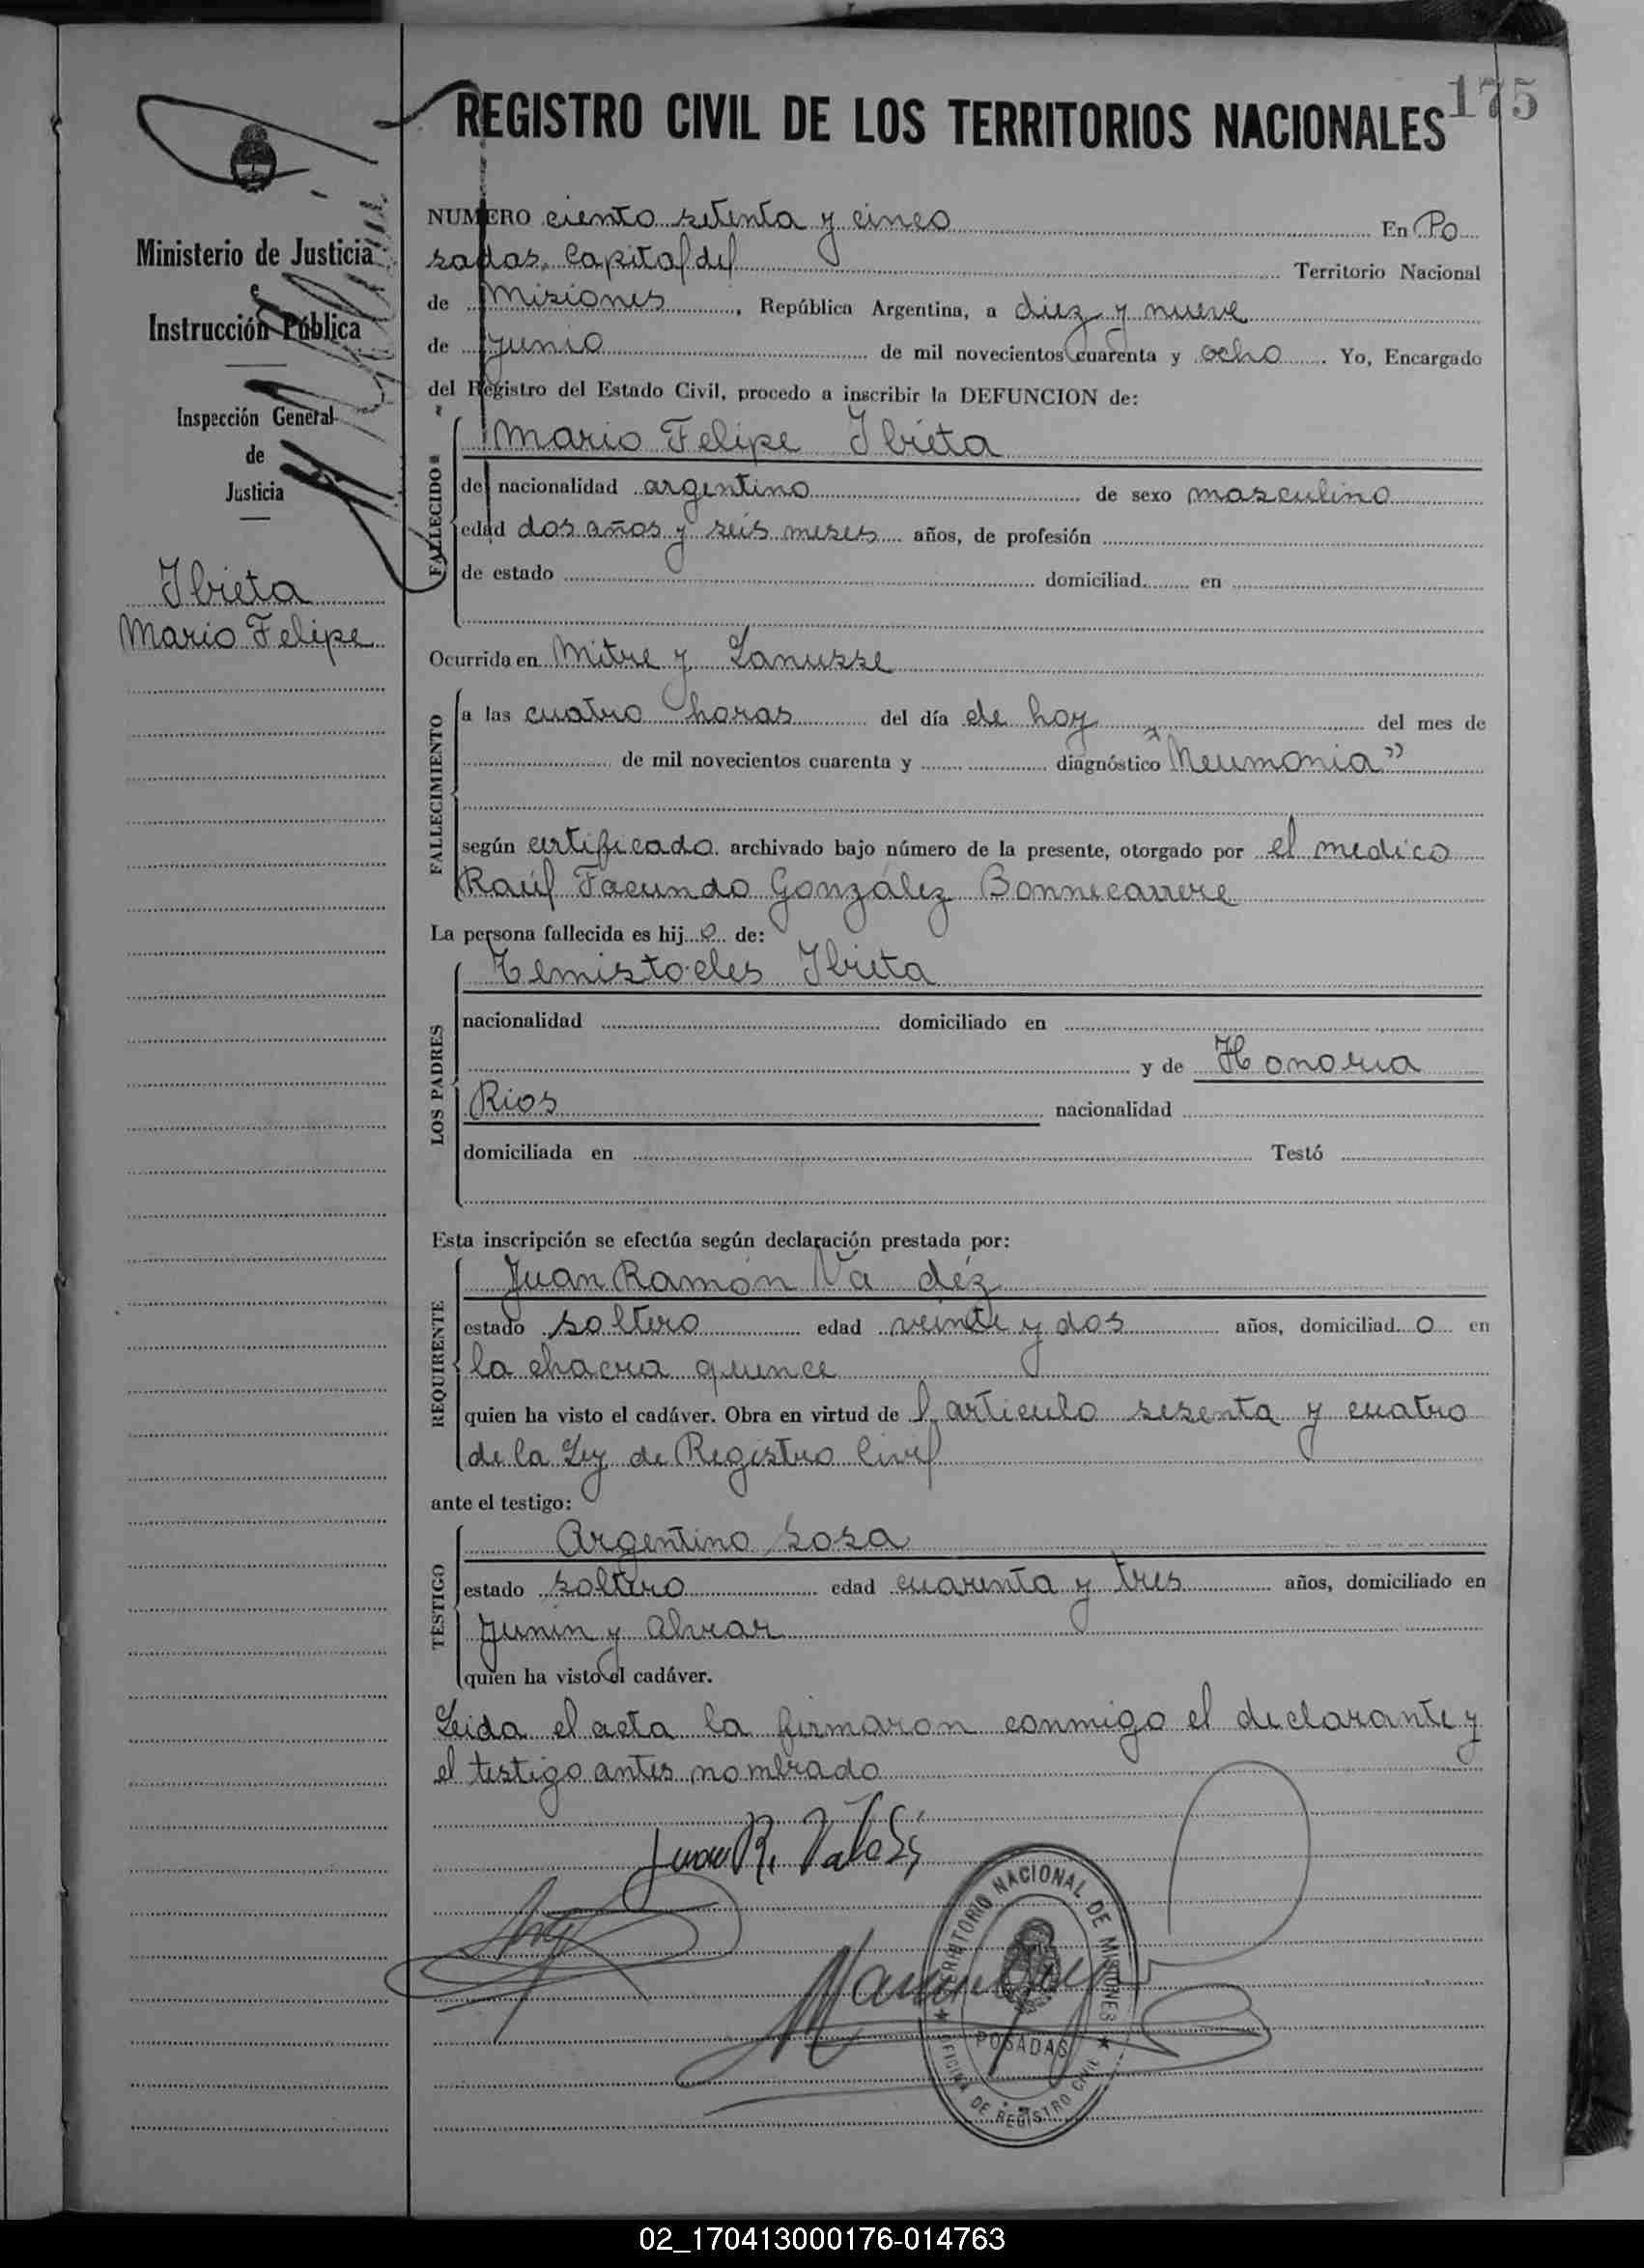 175
REGISTRO CIVIL DE LOS TERRITORIOS NACIONALES
Ministerio de Justicia
e
Instrucción Pública
Inspección General
de
Justicia
Ibieta
Mario Felipe
NUMERO ciento setenta y cinco En Po
sadas, Capital del Territorio Nacional
de Misiones, República Argentina, a diez y nueve
de Junio de mil novecientos cuarenta y ocho. Yo, Encargado
del Registro del Estado Civil, procedo a inscribir la DEFUNCION de:
FALLECIDO
Mario Felipe Ibieta
de nacionalidad argentino de sexo masculino
edad dos años y seis meses años, de profesión
de estado domiciliad en
Ocurrida en Mitre y Lanusse
FALLECIMIENTO
a las cuatro horas del día de hoy del mes de
de mil novecientos cuarenta y diagnóstico "Neumonia"
según certificado archivado bajo número de la presente, otorgado por el medico
Raúl Facundo González Bonnecarrere
La persona fallecida es hijo de:
LOS PADRES
Temistocles Ibieta
nacionalidad domiciliado en
y de Honoria
Rios nacionalidad
domiciliada en Testó
Esta inscripción se efectúa según declaración prestada por:
REQUIRENTE
Juan Ramón Va déz
estado soltero edad veinte y dos años, domiciliado en
la chacra quince
quien ha visto el cadáver. Obra en virtud de l articulo sesenta y cuatro
de la Ley de Registro Civil
ante el testigo:
TESTIGO
Argentino Sosa
estado soltero edad cuarenta y tres años, domiciliado en
Junin y Alvear
quien ha visto el cadáver.
Leida el acta la firmaron conmigo el declarante y
el testigo antes nombrado
Juan R.
TERRITORIO NACIONAL DE MISIONES
POSADAS
OFICINA DE REGISTRO CIVIL
02_170413000176-014763